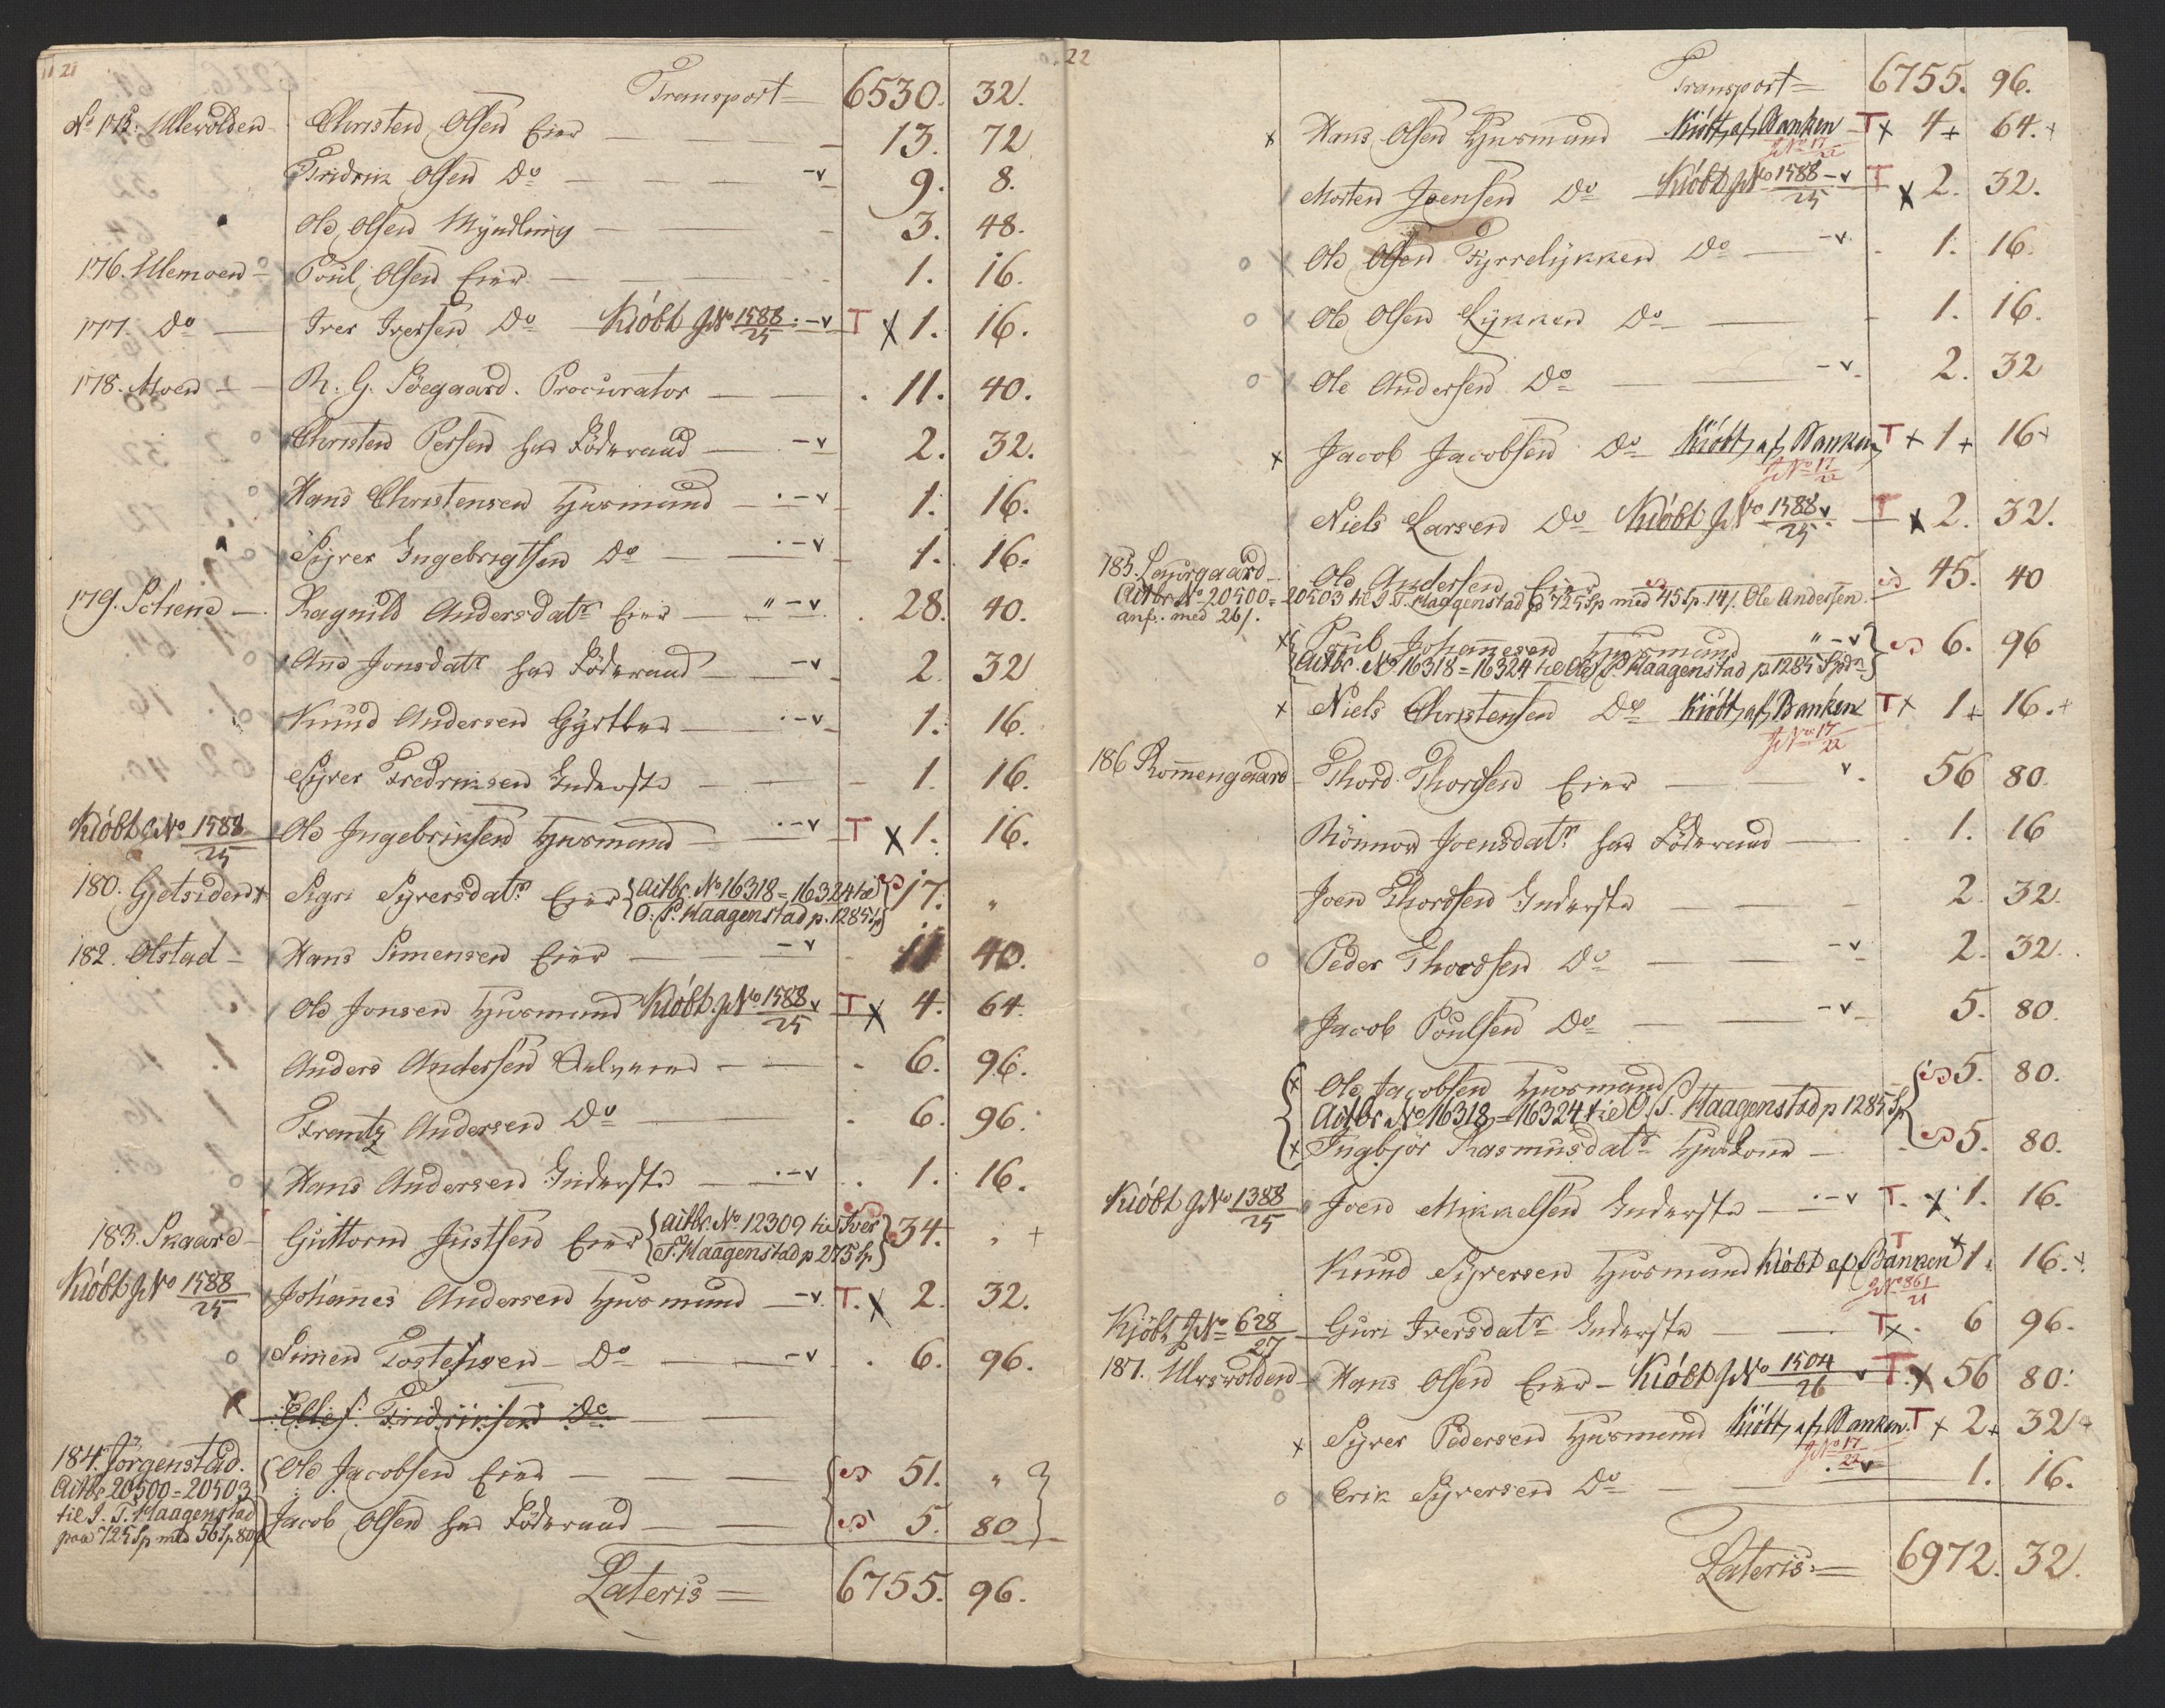 21
Transport = 6530. 32.
No 175. Ulevolden - Christen Olsen Eier 13. 72
Fridrik Olsen Do 9. 8.
Ole Olsen Myndling 3. 48.
176. Ulemoen - Poul Olsen Eier 1. 16.
177. Do Iver Iversen Do Kióbt J No 1588/25 T x 1. 16.
178. Moen R. G. Söegaard. Procurator 11. 40.
Christen Persen har Föderaad 2. 32.
Hans Christensen Huusmand 1. 16.
Syver Ingebrigtsen Do 1. 16.
179. Schene Ragnild Andersdatr Eier 28. 40.
Ane Jonsdatr har Föderaad 2. 32
Knud Andersen 1. 16.
Syver Fredriksen Inderste 1. 16.
Kióbt J No 1588/25 Ole Ingebriksen Huusmand T x 1. 16.
180. Gjetsiden x Sigri Syversdatr Eier {Actbr. No 16318 = 16324 til
O. P. Haagenstad p. 1285 Sp} 17. "
182. Olstad - Hans Simensen Eier 11 40.
Ole Jonsen Huusmand Kióbt J No 1588/25 T x 4. 64.
Anders Andersen 6. 96.
Frantz Andersen Do 6. 96.
Hans Andersen Inderste 1. 16.
183. Skaare - Guttorm Justsen Eier {Actbr. No 12309 til Iver
P. Haagenstad p 275 Sp} 34. " +
Kióbt J No 1588/25 Johannes Andersen Huusmand T. x 2. 32.
Simen Tostensen Do 6. 96.
x Ellef Fridriksen Do
184. Jörgenstad. {Ole Jacobsen Eier 51. "
Actbr 20500 = 20503
til I. T. Haagenstad {Jacob Olsen har Föderaad 5. 80
paa 725 Sp med 56 Sp 80 s
Lateris = 6755. 96.
22
Transport = 6755. 96.
x Hans Olsen Huusmand Kiöbt af Banken T x 4 + 64. +
J No 17/22
Morten Joensen Do Kióbt J No 1588/25 T x 2. 32.
o Ole Olsen Fyrrelykken Do 1. 16.
o Ole Olsen Lykken Do 1. 16.
o Ole Andersen Do 2. 32
x Jacob Jacobsen Do Kiöbt af Banken T x 1 + 16 +
J No 17/22
Niels Larsen Do Kióbt J No 1588/25 T x 2. 32.
185. Laurgaard - Ole Andersen Eier 45. 40
Actbr No 20500 = 20503 til I. T. Haagenstad p 725 Sp med 45 Sp. 14 s. Ole Andersen
anf. med 26 s.
x {Poul Johannesen Huusmand 6. 96
{Actbr. No 16318 = 16324 til Ole P. Haagenstad p 1285 Spd}
x Niels Christensen Do Kiöbt af Banken T x 1 + 16. +
J No 17/22
186 Rommengaard - Thord Thordsen Eier 56 80.
Rönnow Joensdatr har Föderaad 1. 16
Joen Thordsen Inderste 2. 32.
o Peder Thordsen Do 2. 32.
Jacob Poulsen Do 5. 80.
{x Ole Jacobsen Huusmand 5. 80.
Actbr No 16318 = 16324 til O. P. Haagenstad p 1285 Sp
{x Ingbjör Rasmusdatr Huuskone 5. 80.
Kióbt J No 1388/25 Joen Mikkelsen Inderste T. x 1. 16.
Knud Syversen Huusmand Kióbt af Banken T x 1. 16. +
J No 861/21
Kjöbt J No 628/27 Guri Iversdatr Inderste T x. 6 96.
187. Ulvsvolden - Hans Olsen Eier - Kióbt J No 1504/26 T. x 56 80.
x Syver Pedersen Huusmand Kiöbt af Banken. T x 2 + 32 +
J No 17/22
o Erik Syversen Do 1. 16.
Lateris = 6972. 32.